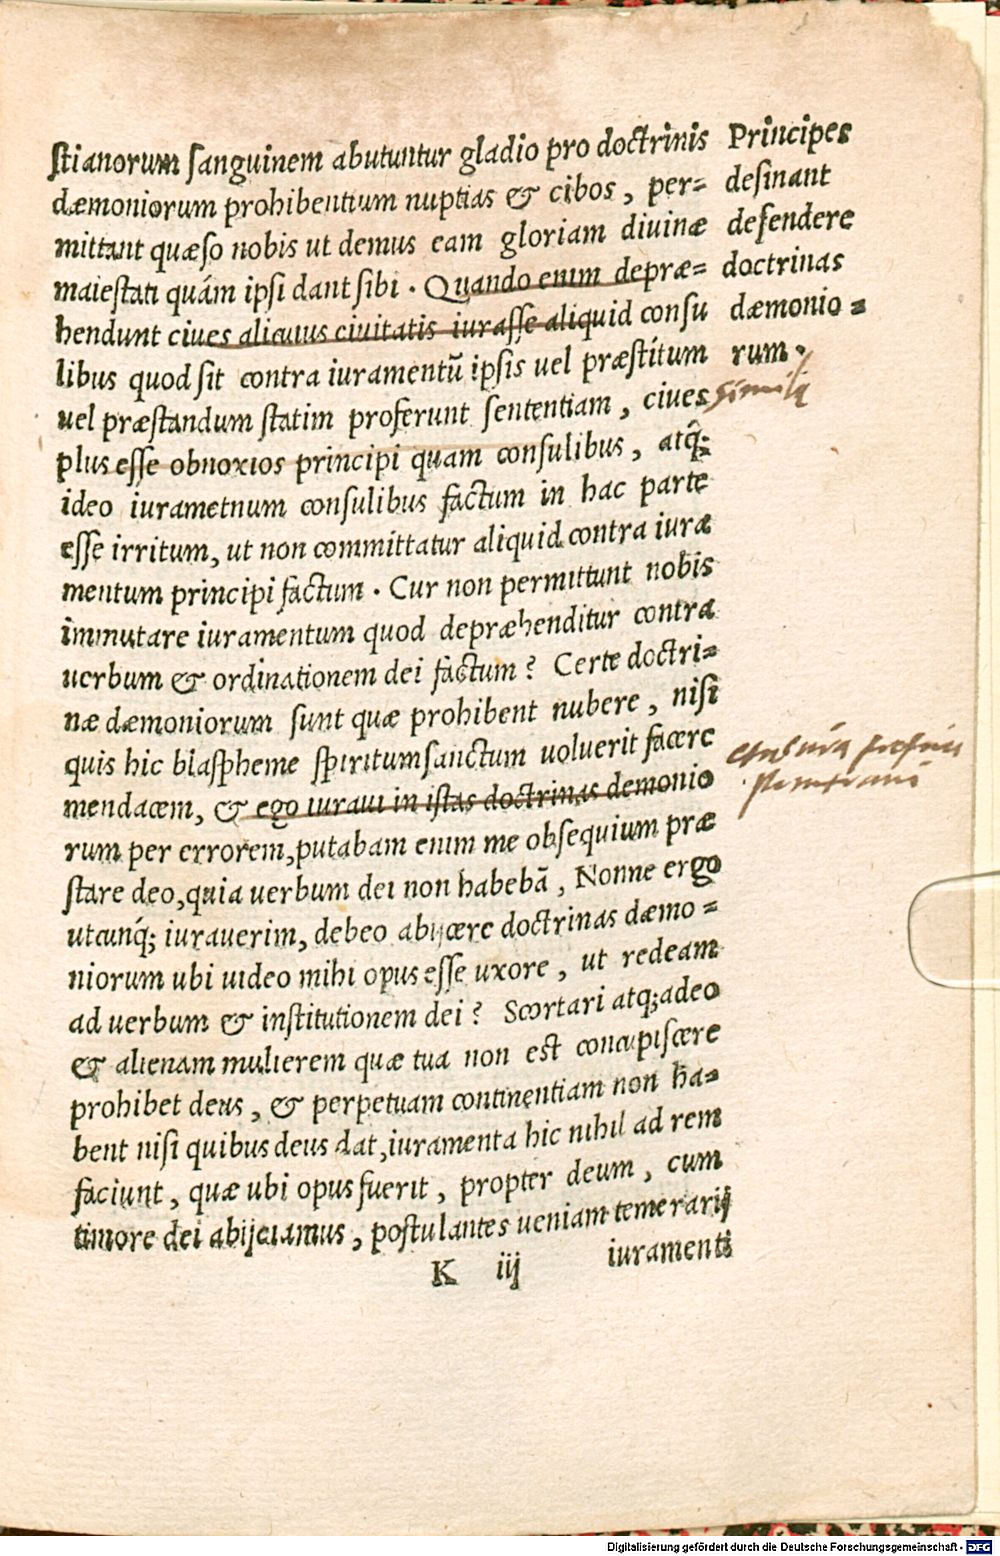 stianorum sanguinem abutuntur gladio pro doctrinis
dæmoniorum prohibentium nuptias & cibos, per=
mittant quæso nobis ut demus eam gloriam diuinæ
maiestati quám ipsi dant sibi. Quando enim depræ=
hendunt ciues alicuius ciuitatis iurasse aliquid consu
libus quod sit contra iuramentũ ipsis uel præstitum
uel præstandum statim proferunt sententiam, ciues
plus esse obnoxios principi quam consulibus, atq́;
ideo iurametnum consulibus factum in hac parte
esse irritum, ut non committatur aliquid contra iura
mentum principi factum. Cur non permittunt nobis
immutare iuramentum quod depræhenditur contra
uerbum & ordinationem dei factum? Certe doctri=
næ dæmoniorum sunt quæ prohibent nubere, nisi
quis hic blaspheme spiritumsanctum uoluerit facere
mendacem, & ego iuraui in istas doctrinas demonio
rum per errorem, putabam enim me obsequium præ
stare deo, quia uerbum dei non habebã, Nonne ergo
utcunq́; iurauerim, debeo abijcere doctrinas dæmo=
niorum ubi uideo mihi opus esse uxore, ut redeam
ad uerbum & institutionem dei? Scortari atq; adeo
& alienam mulierem quæ tua non est concupiscere
prohibet deus, & perpetuam continentiam non ha=
bent nisi quibus deus dat, iuramenta hic nihil ad rem
faciunt, quæ ubi opus fuerit, propter deum, cum
timore dei abijciamus, postulantes ueniam temerarij
K iij
iuramenti
Principes
desinant
defendere
doctrinas
dæmonio=
rum.
Digitalisierung gefördert durch die Deutsche Forschungsgemeinschaft - DFG